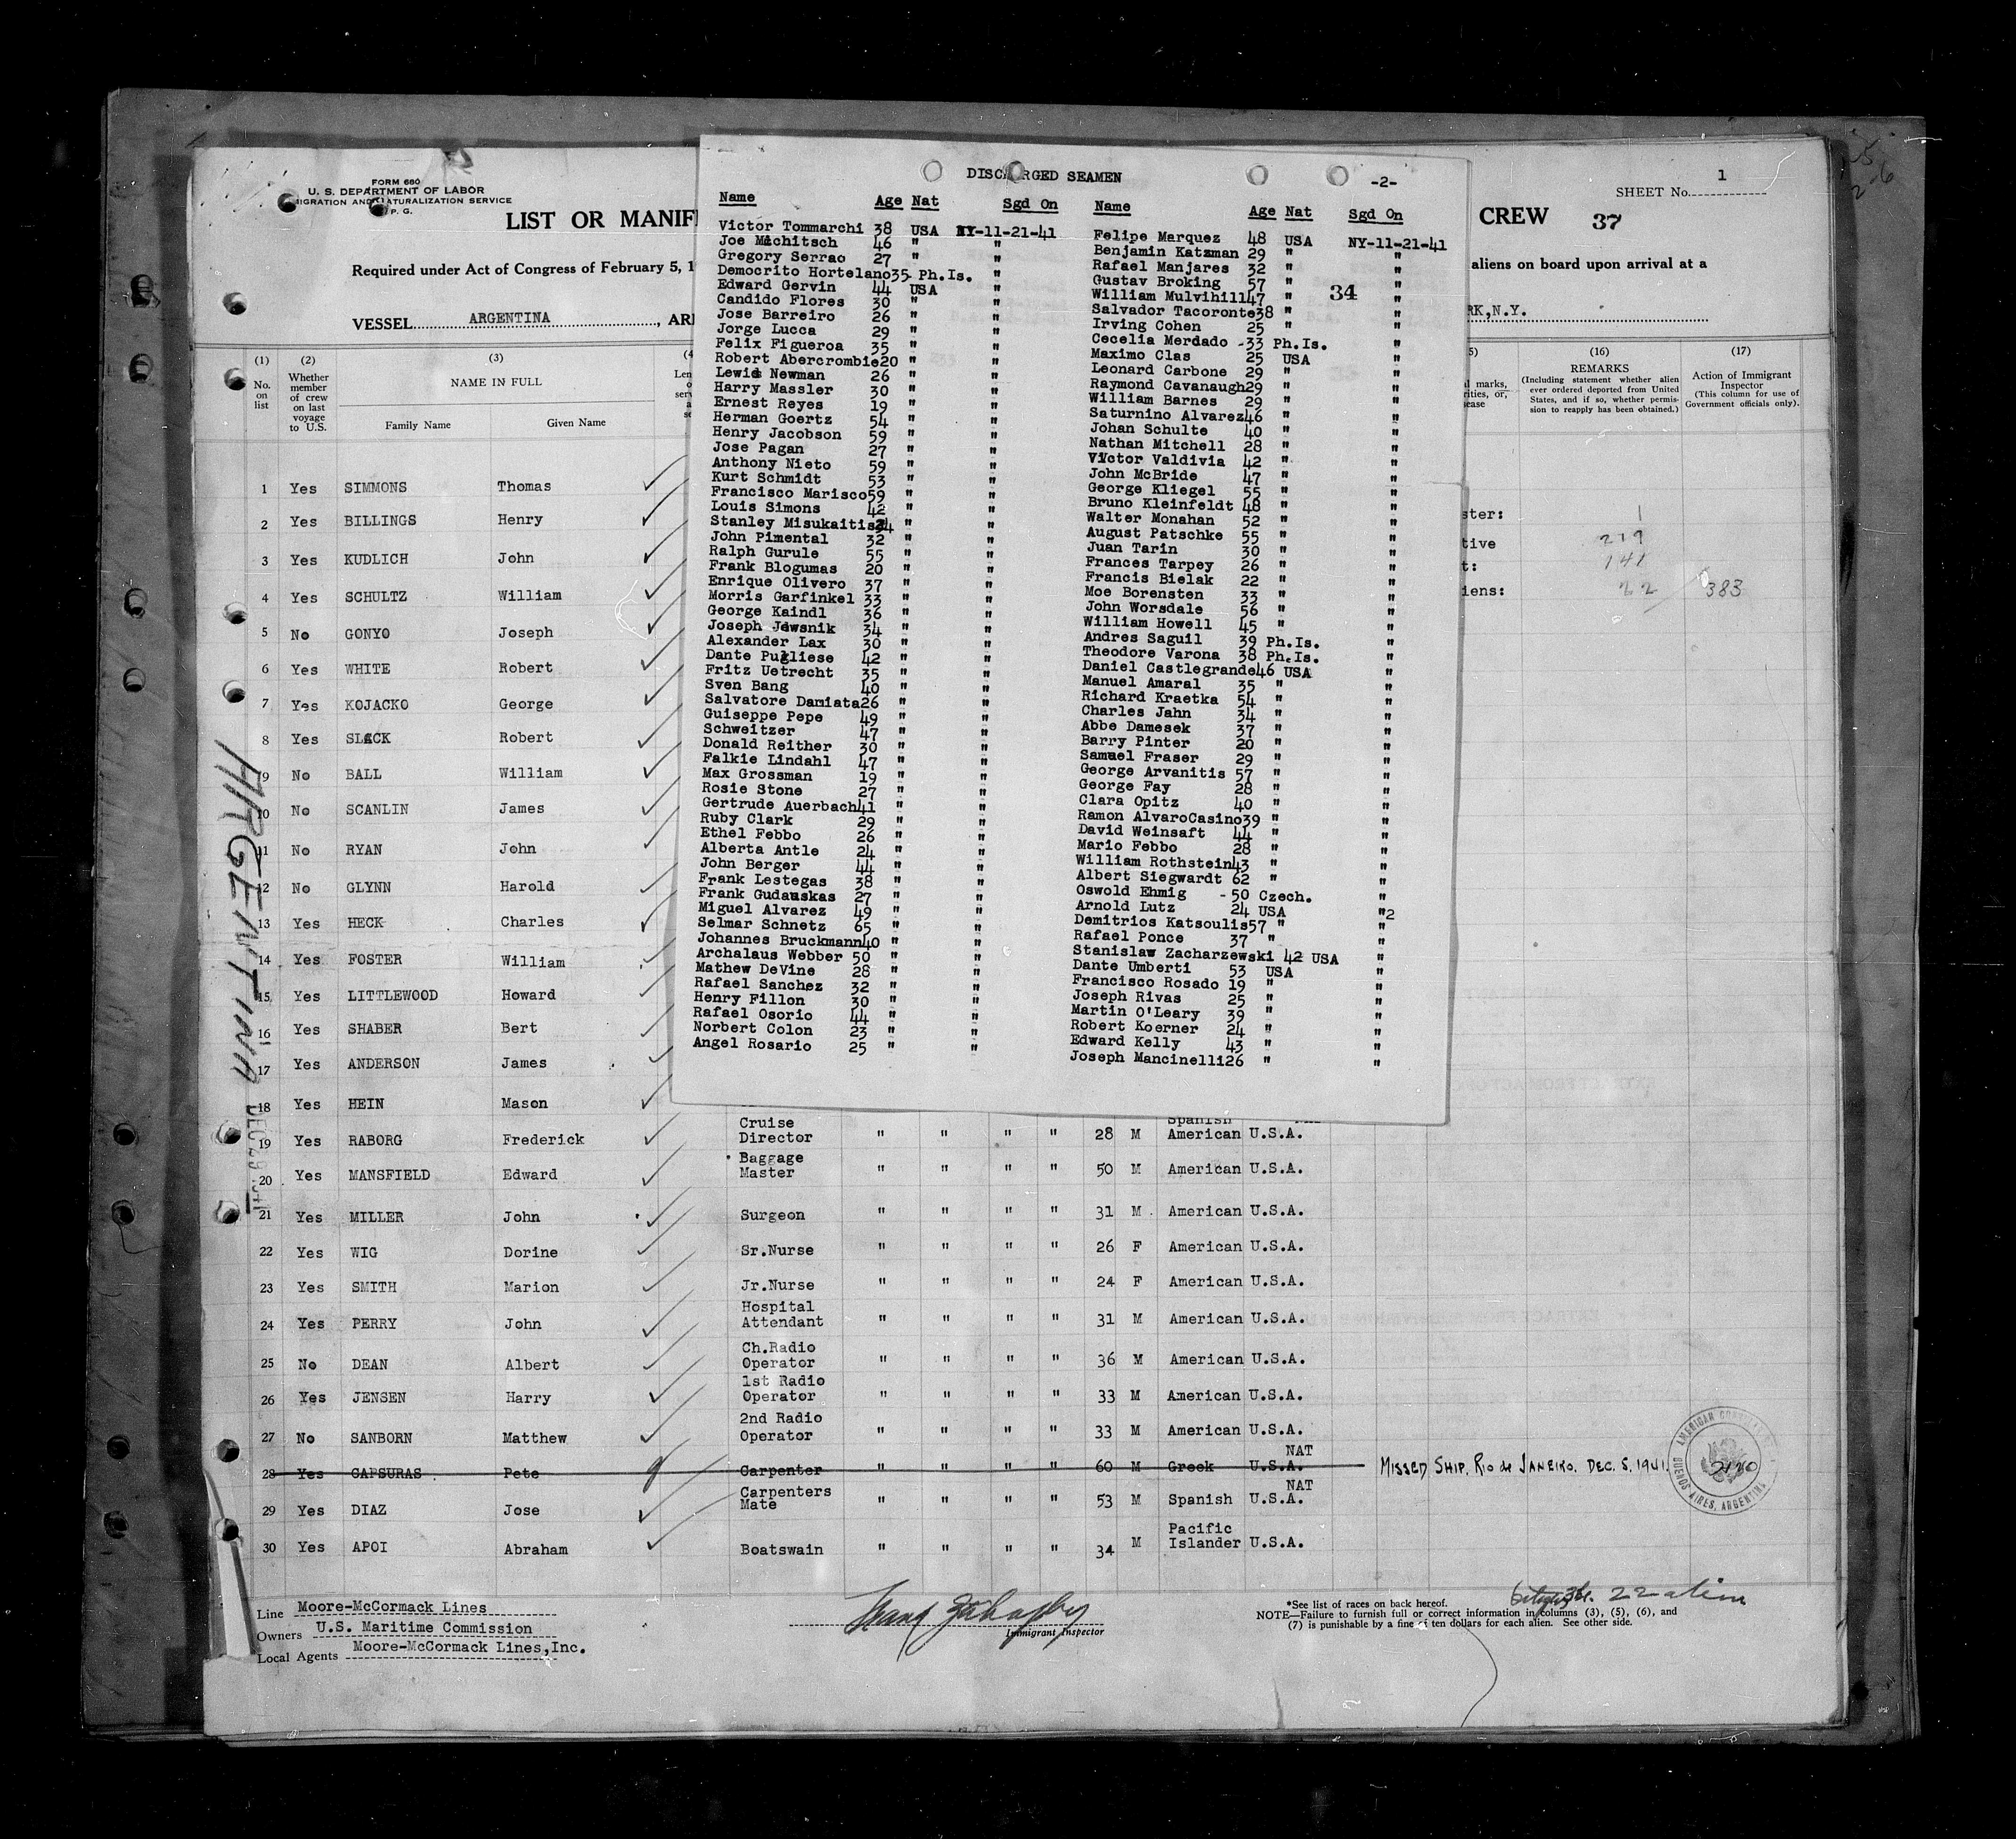 FORM 680
U. S. DEPARTMENT OF LABOR
MIGRATION AND NATURALIZATION SERVICE
P. G.
LIST OR MANIF
CREW 37
SHEET No. 1
Required under Act of Congress of February 5, 1
aliens on board upon arrival at a
VESSEL ARGENTINA , ARI
RK, N.Y.
DISCHARGED SEAMEN -2-
Name Age Nat Sgd On
Victor Tommarchi 38 USA NY-11-21-41
Joe Michitsch 46 " "
Gregory Serrao 27 " "
Democrito Hortelano 35- Ph.Is. "
Edward Gervin 44 USA "
Candido Flores 30 " "
Jose Barreiro 26 " "
Jorge Lucca 29 " "
Felix Figueroa 35 " "
Robert Abercrombie 20 " "
Lewis Newman 26 " "
Harry Massler 30 " "
Ernest Reyes 19 " "
Herman Goertz 54 " "
Henry Jacobson 59 " "
Jose Pagan 27 " "
Anthony Nieto 59 " "
Kurt Schmidt 53 " "
Francisco Marisco 59 " "
Louis Simons 42 " "
Stanley Misukaitis " "
John Pimental 32 " "
Ralph Gurule 55 " "
Frank Blogumas 20 " "
Enrique Olivero 37 " "
Morris Garfinkel 33 " "
George Kaindl 36 " "
Joseph Jewsnik 34 " "
Alexander Lax 30 " "
Dante Pugliese 42 " "
Fritz Uetrecht 35 " "
Sven Bang 40 " "
Salvatore Damiata 26 " "
Guiseppe Pepe 49 " "
Schweitzer 47 " "
Donald Reither 30 " "
Falkie Lindahl 47 " "
Max Grossman 19 " "
Rosie Stone 27 " "
Gertrude Auerbach 41 " "
Ruby Clark 29 " "
Ethel Febbo 26 " "
Alberta Antle 24 " "
John Berger 44 " "
Frank Lestegas 38 " "
Frank Gudauskas 27 " "
Miguel Alvarez 49 " "
Selmar Schnetz 65 " "
Johannes Bruckmann 40 " "
Archalaus Webber 50 " "
Mathew DeVine 28 " "
Rafael Sanchez 32 " "
Henry Fillon 30 " "
Rafael Osorio 44 " "
Norbert Colon 23 " "
Angel Rosario 25 " "
Name Age Nat Sgd On
Felipe Marquez 48 USA NY-11-21-41
Benjamin Katzman 29 " "
Rafael Manjares 32 " "
Gustav Broking 57 " "
34
William Mulvihill 47 " "
Salvador Tacoronte 38 " "
Irving Cohen 25 " "
Cecelia Merdado -33 Ph.Is. "
Maximo Clas 25 USA "
Leonard Carbone 29 " "
Raymond Cavanaugh 29 " "
William Barnes 29 " "
Saturnino Alvarez 46 " "
Johan Schulte 40 " "
Nathan Mitchell 28 " "
Victor Valdivia 42 " "
John McBride 47 " "
George Kliegel 55 " "
Bruno Kleinfeldt 48 " "
Walter Monahan 52 " "
August Patschke 55 " "
Juan Tarin 30 " "
Frances Tarpey 26 " "
Francis Bielak 22 " "
Moe Borensten 33 " "
John Worsdale 56 " "
William Howell 45 " "
Andres Saguil 39 Ph.Is. "
Theodore Varona 38 Ph.Is. "
Daniel Castlegrande 46 USA "
Manuel Amaral 35 " "
Richard Kraetka 54 " "
Charles Jahn 34 " "
Abbe Damesek 37 " "
Barry Pinter 20 " "
Samuel Fraser 29 " "
George Arvanitis 57 " "
George Fay 28 " "
Clara Opitz 40 " "
Ramon AlvaroCasino 39 " "
David Weinsaft 44 " "
Mario Febbo 28 " "
William Rothstein 43 " "
Albert Siegwardt 62 " "
Oswold Ehmig - 50 Czech. "
Arnold Lutz 24 USA "2
Demitrios Katsoulis 57 " "
Rafael Ponce 37 " "
Stanislaw Zacharzewski 42 USA "
Dante Umberti 53 USA "
Francisco Rosado 19 " "
Joseph Rivas 25 " "
Martin O'Leary 39 " "
Robert Koerner 24 " "
Edward Kelly 43 " "
Joseph Mancinelli 26 " "
(1) (2) (3) (4 5) (16) (17)
No. on list
Whether member of crew on last voyage to U.S.
NAME IN FULL
Family Name Given Name
REMARKS
(Including statement whether alien ever ordered deported from United States, and if so, whether permission to reapply has been obtained.)
Action of Immigrant Inspector
(This column for use of Government officials only).
ster: 1
tive 219
t: 141
iens: 22 383
1 Yes SIMMONS Thomas
2 Yes BILLINGS Henry
3 Yes KUDLICH John
4 Yes SCHULTZ William
5 No GONYO Joseph
6 Yes WHITE Robert
7 Yes KOJACKO George
8 Yes SLACK Robert
9 No BALL William
10 No SCANLIN James
11 No RYAN John
12 No GLYNN Harold
13 Yes HECK Charles
14 Yes FOSTER William
15 Yes LITTLEWOOD Howard
16 Yes SHABER Bert
17 Yes ANDERSON James
18 Yes HEIN Mason Spanish
19 Yes RABORG Frederick Cruise Director " " " " 28 M American U.S.A.
20 Yes MANSFIELD Edward Baggage Master " " " " 50 M American U.S.A.
21 Yes MILLER John Surgeon " " " " 31 M American U.S.A.
22 Yes WIG Dorine Sr.Nurse " " " " 26 F American U.S.A.
23 Yes SMITH Marion Jr.Nurse " " " " 24 F American U.S.A.
24 Yes PERRY John Hospital Attendant " " " " 31 M American U.S.A.
25 No DEAN Albert Ch.Radio Operator " " " " 36 M American U.S.A.
26 Yes JENSEN Harry 1st Radio Operator " " " " 33 M American U.S.A.
27 No SANBORN Matthew 2nd Radio Operator " " " " 33 M American U.S.A.
28 Yes CAPSURAS Pete Carpenter " " " " 60 M Greek NAT U.S.A. MISSED SHIP. RIO de JANEIRO. DEC. 5. 1941
29 Yes DIAZ Jose Carpenters Mate " " " " 53 M Spanish NAT U.S.A.
30 Yes APOI Abraham Boatswain " " " " 34 M Pacific Islander U.S.A.
ARGENTINA
AMERICAN
BUENOS AIRES, ARGENTINA
Line Moore-McCormack Lines
Owners U.S. Maritime Commission
Local Agents Moore-McCormack Lines,Inc.
Immigrant Inspector
22 alien
*See list of races on back hereof.
NOTE—Failure to furnish full or correct information in columns (3), (5), (6), and
(7) is punishable by a fine of ten dollars for each alien. See other side.